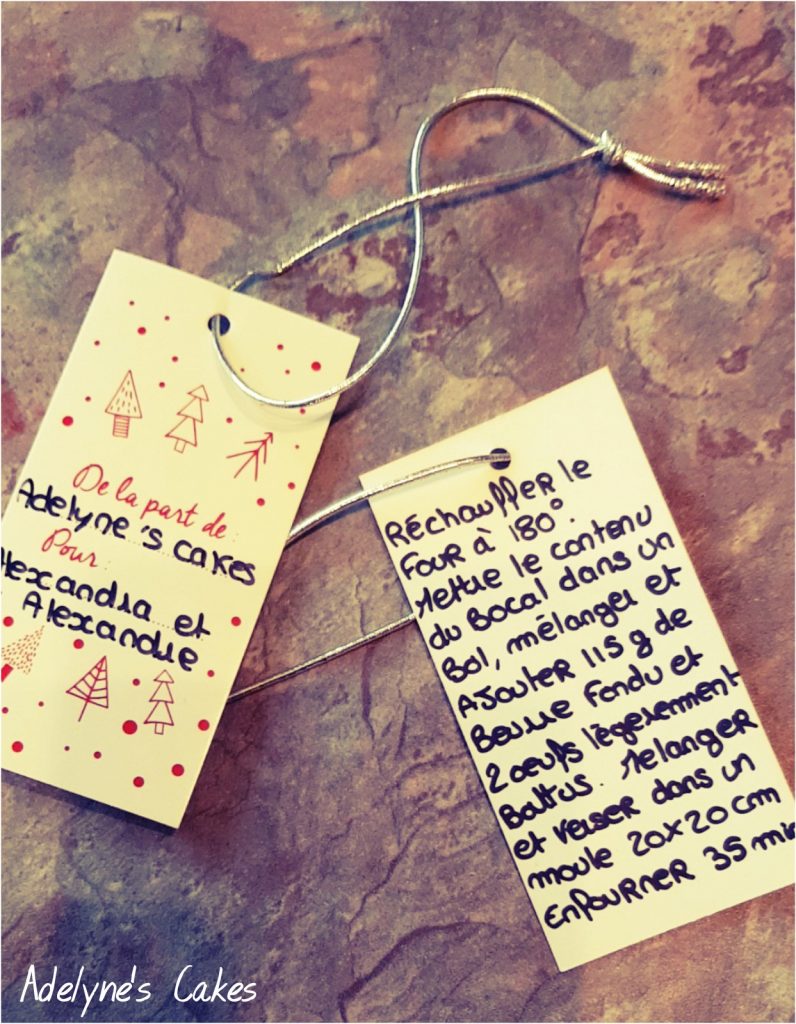 De la part de:
Adelyne's cakes
Pour:
Alexandra et
Alexandre
Réchauffer le
four à 180°.
Mettre le contenu
du Bocal dans un
Bol, mélanger et
Ajouter 115g de
Beurre fondu et
2 oeufs légerement
Battus. Melanger
et verser dans un
moule 20x20 cm
Enfourner 35 min
Adelyne's Cakes